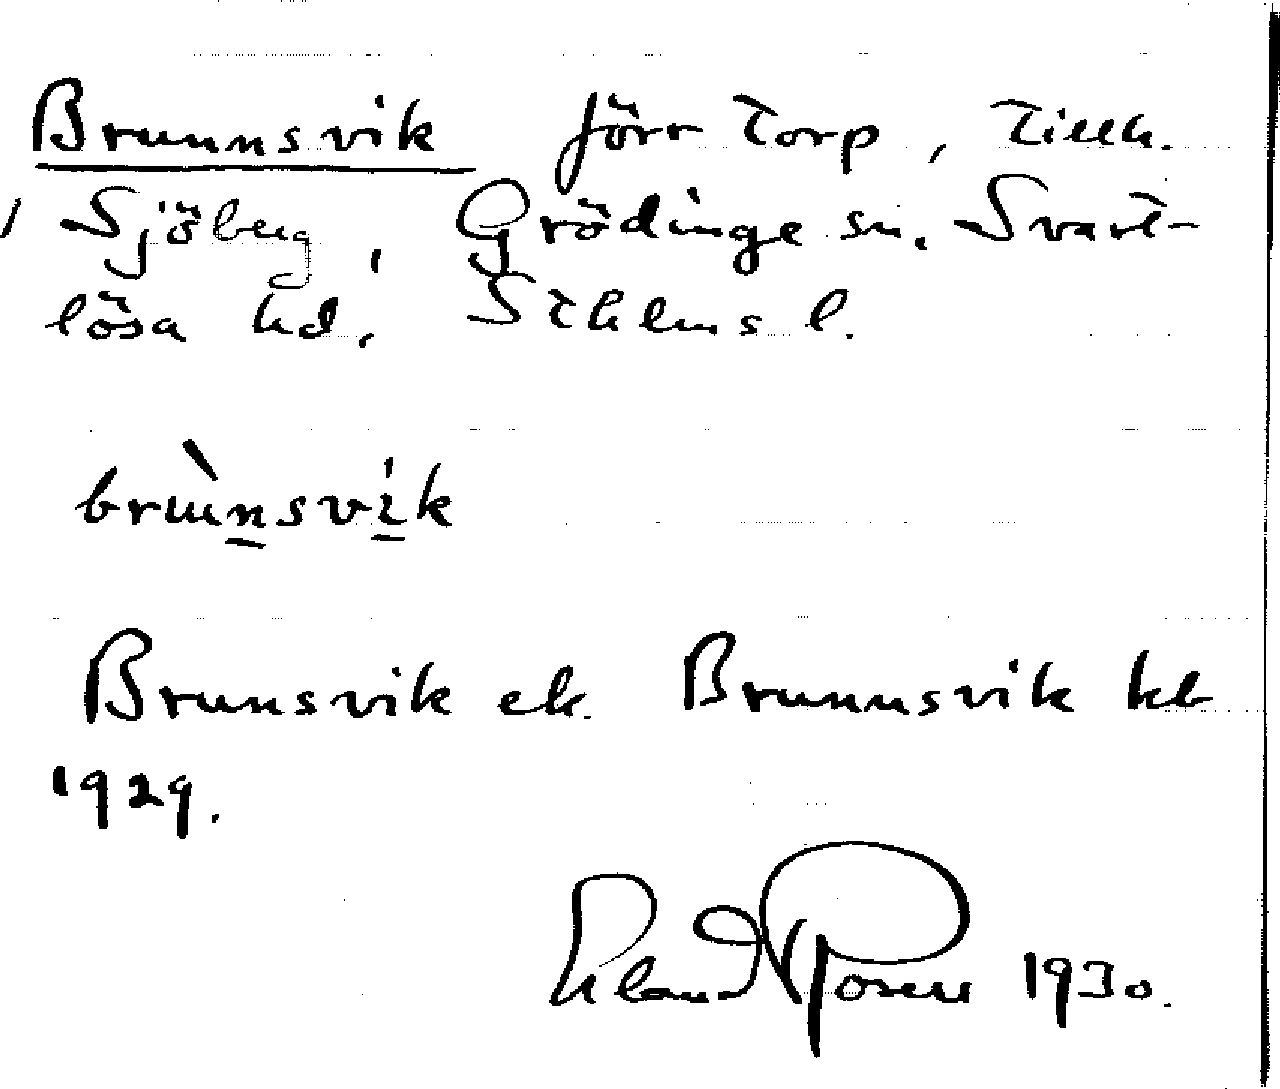 Brunnsvik förr torp, tillh.
Sjöberg, Grödinge sn. Svart-
lösa hd, Sthlms l.
brùnsvi̍k
Brunsvik ek. Brunnsvik kb
1929.
1930.